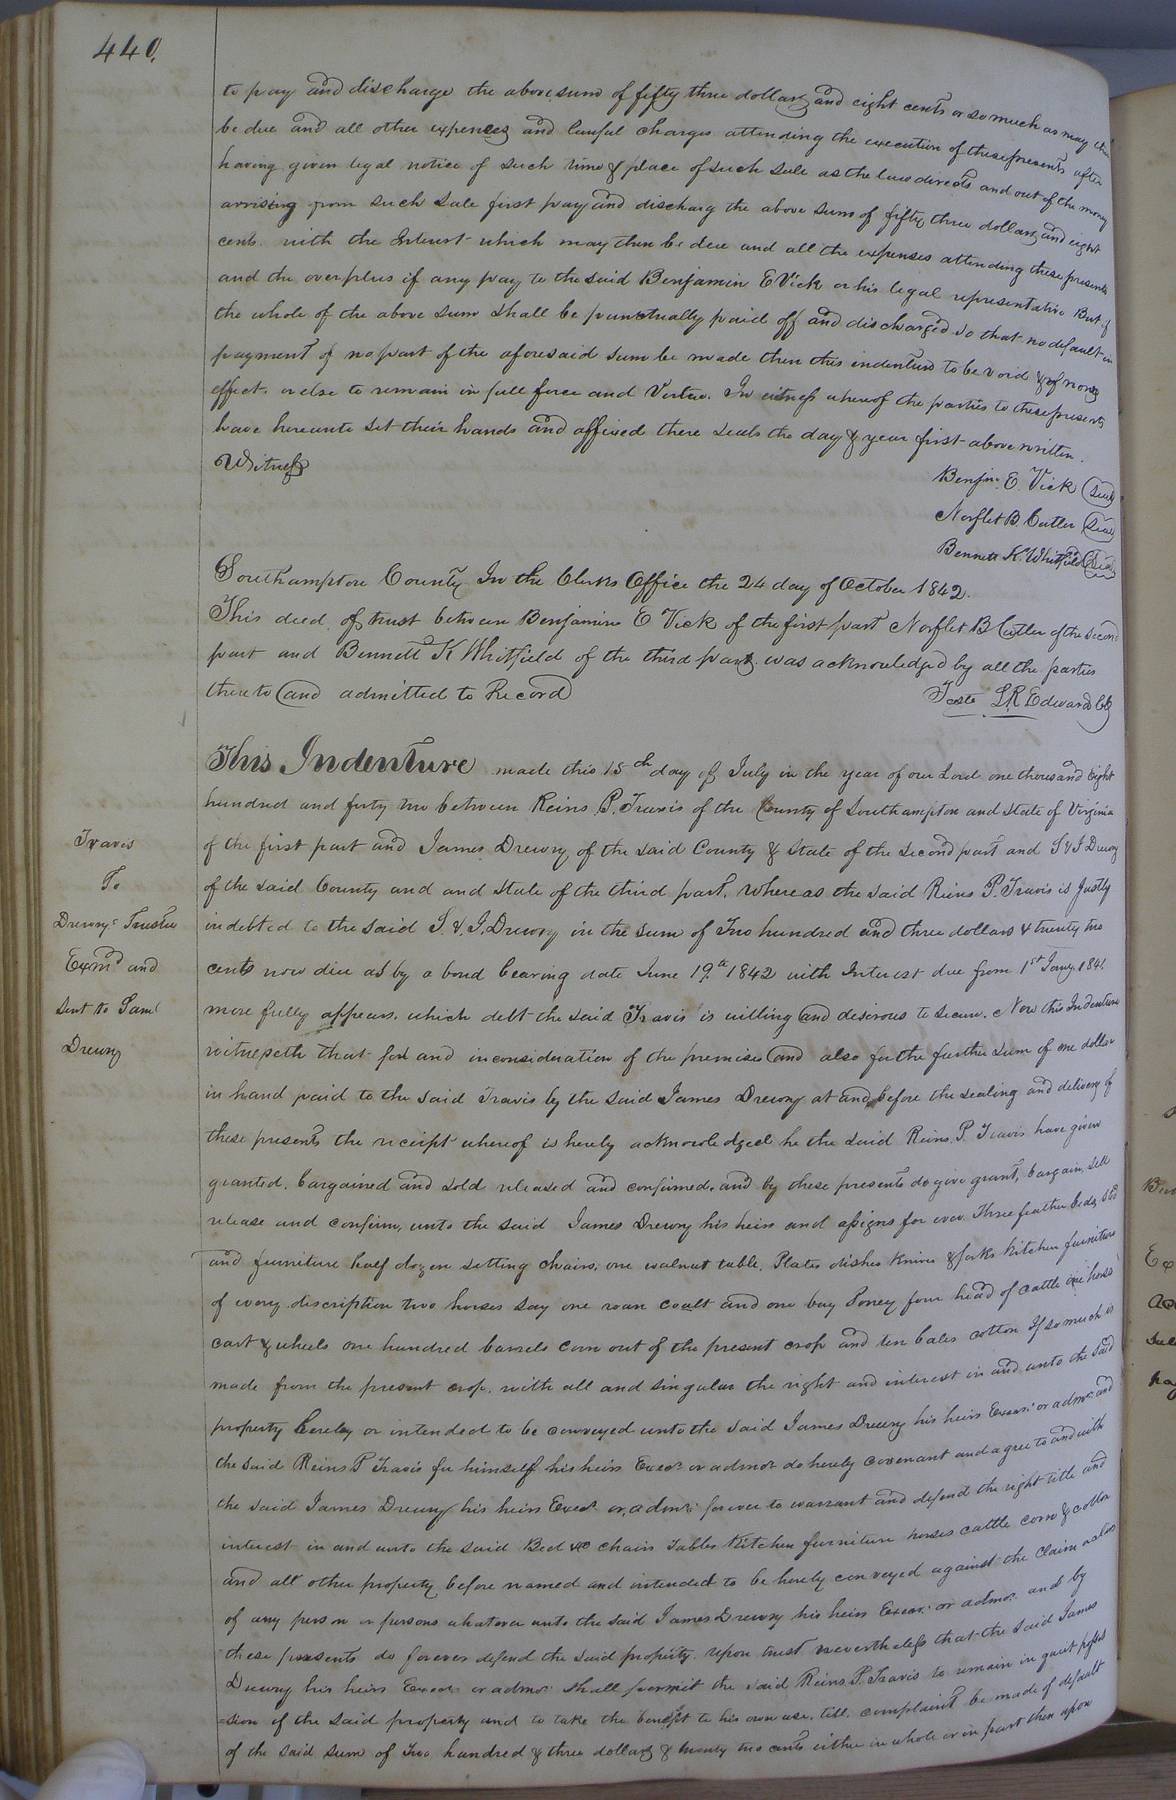 440,
to pay and discharge the above sum of fifty three dollars and eight cents or so much as may then
be due and all other expences and lawful charges attending the execution of these presents after
having given legal notice of such time & place of such sale as the law directs and out of the money
arrising from such sale first pay and discharg the above sum of fifty three dollars and eight
cents with the Interest which may then be due and all the expenses attending these presents
and the overplus if any pay to the said Benjamin E Vick or his legal representative But if
the whole of the above sum shall be punctually paid off and discharged so that no default in
payment of no part of the aforesaid sum be made then this indenture to be void & of none
effect or else to remain in full force and Virtue. In witness whereof the parties to these presents
have hereunto set their hands and affixed there seals the day & year first above written.
Witness
Benjn. E. Vick (Seal)
Norflet B. Cutler (Seal)
Bennett K. Whitfield (Seal)
Southampton County In the Clerks Office the 24 day of October 1842.
This deed of trust between Benjamin E Vick of the first part Norflet B Cutler of the second
part and Bennett K Whitfield of the third part was acknowledged by all the parties
thereto and admitted to Record
Teste L R Edwards Clk
This Indenture made this 15th day of July in the year of our Lord one thousand Eight
hundred and forty two between Reins P. Travis of the County of Southampton and State of Virginia
of the first part and James Drewry of the said County & State of the second part and S & J Drewry
of the said County and and State of the third part. Whereas the said Reins P. Travis is Justly
indebted to the said S. & J. Drewry in the sum of Two hundred and three dollars & twenty two
cents now due as by a bond bearing date June 19th 1842 with Interest due from 1st Jany. 1841
more fully appears. which debt the said Travis is willing and desirous to secure. Now this Indenture
witnesseth that for and inconsideration of the premises and also for the further sum of one dollar
in hand paid to the said Travis by the said James Drewry at and before the sealing and delivery of
these presents the receipt whereof is hereby acknowledged he the said Reins. P. Travis have given
granted. bargained and sold released and confirmed. and by these presents do give grant, bargain, sell
release and confirm, unto the said James Drewry his heirs and assigns for ever Three feather beds, sted
and furniture half dozen setting chairs, one walnut table. Plates dishes Knives & forks kitchen furniture
of every discription two horses say one roan coalt and one bay Poney four head of cattle one horse
cart & wheels one hundred barrels corn out of the present crop and ten bales cotton If so much is
made from the present crop. with all and singular the right and interest in and unto the said
property hereby or intended to be conveyed unto the said James Drewry his heirs Execrs. or admrs. and
the said Reins P Travis for himself his heirs Execr. or admor. do hereby covenant and agree to and with
the said James Drewry his heirs Execr. or, admrs. forever to warrant and defend the right title and
interest in and unto the said Bed &c chairs Tables Kitchen furniture horses cattle corn & cotton
and all other property before named and intended to be hereby conveyed against the Claim or claims
of any person or persons whatever unto the said James Drewry his heirs Execrs. or admor. and by
these presents do forever defend the said property. Upon trust nevertheless that the said James
Drewry his heirs Execr. or admor. shall permit the said Reins. P. Travis to remain in quiet posses
sion of the said property and to take the benefit to his own use. till. complaint be made of default
of the said sum of Two hundred & three dollars & twenty two cents either in whole or in part then upon
Travis
To
Drewry: Trustee
Exmd and
sent to Saml
Drewry